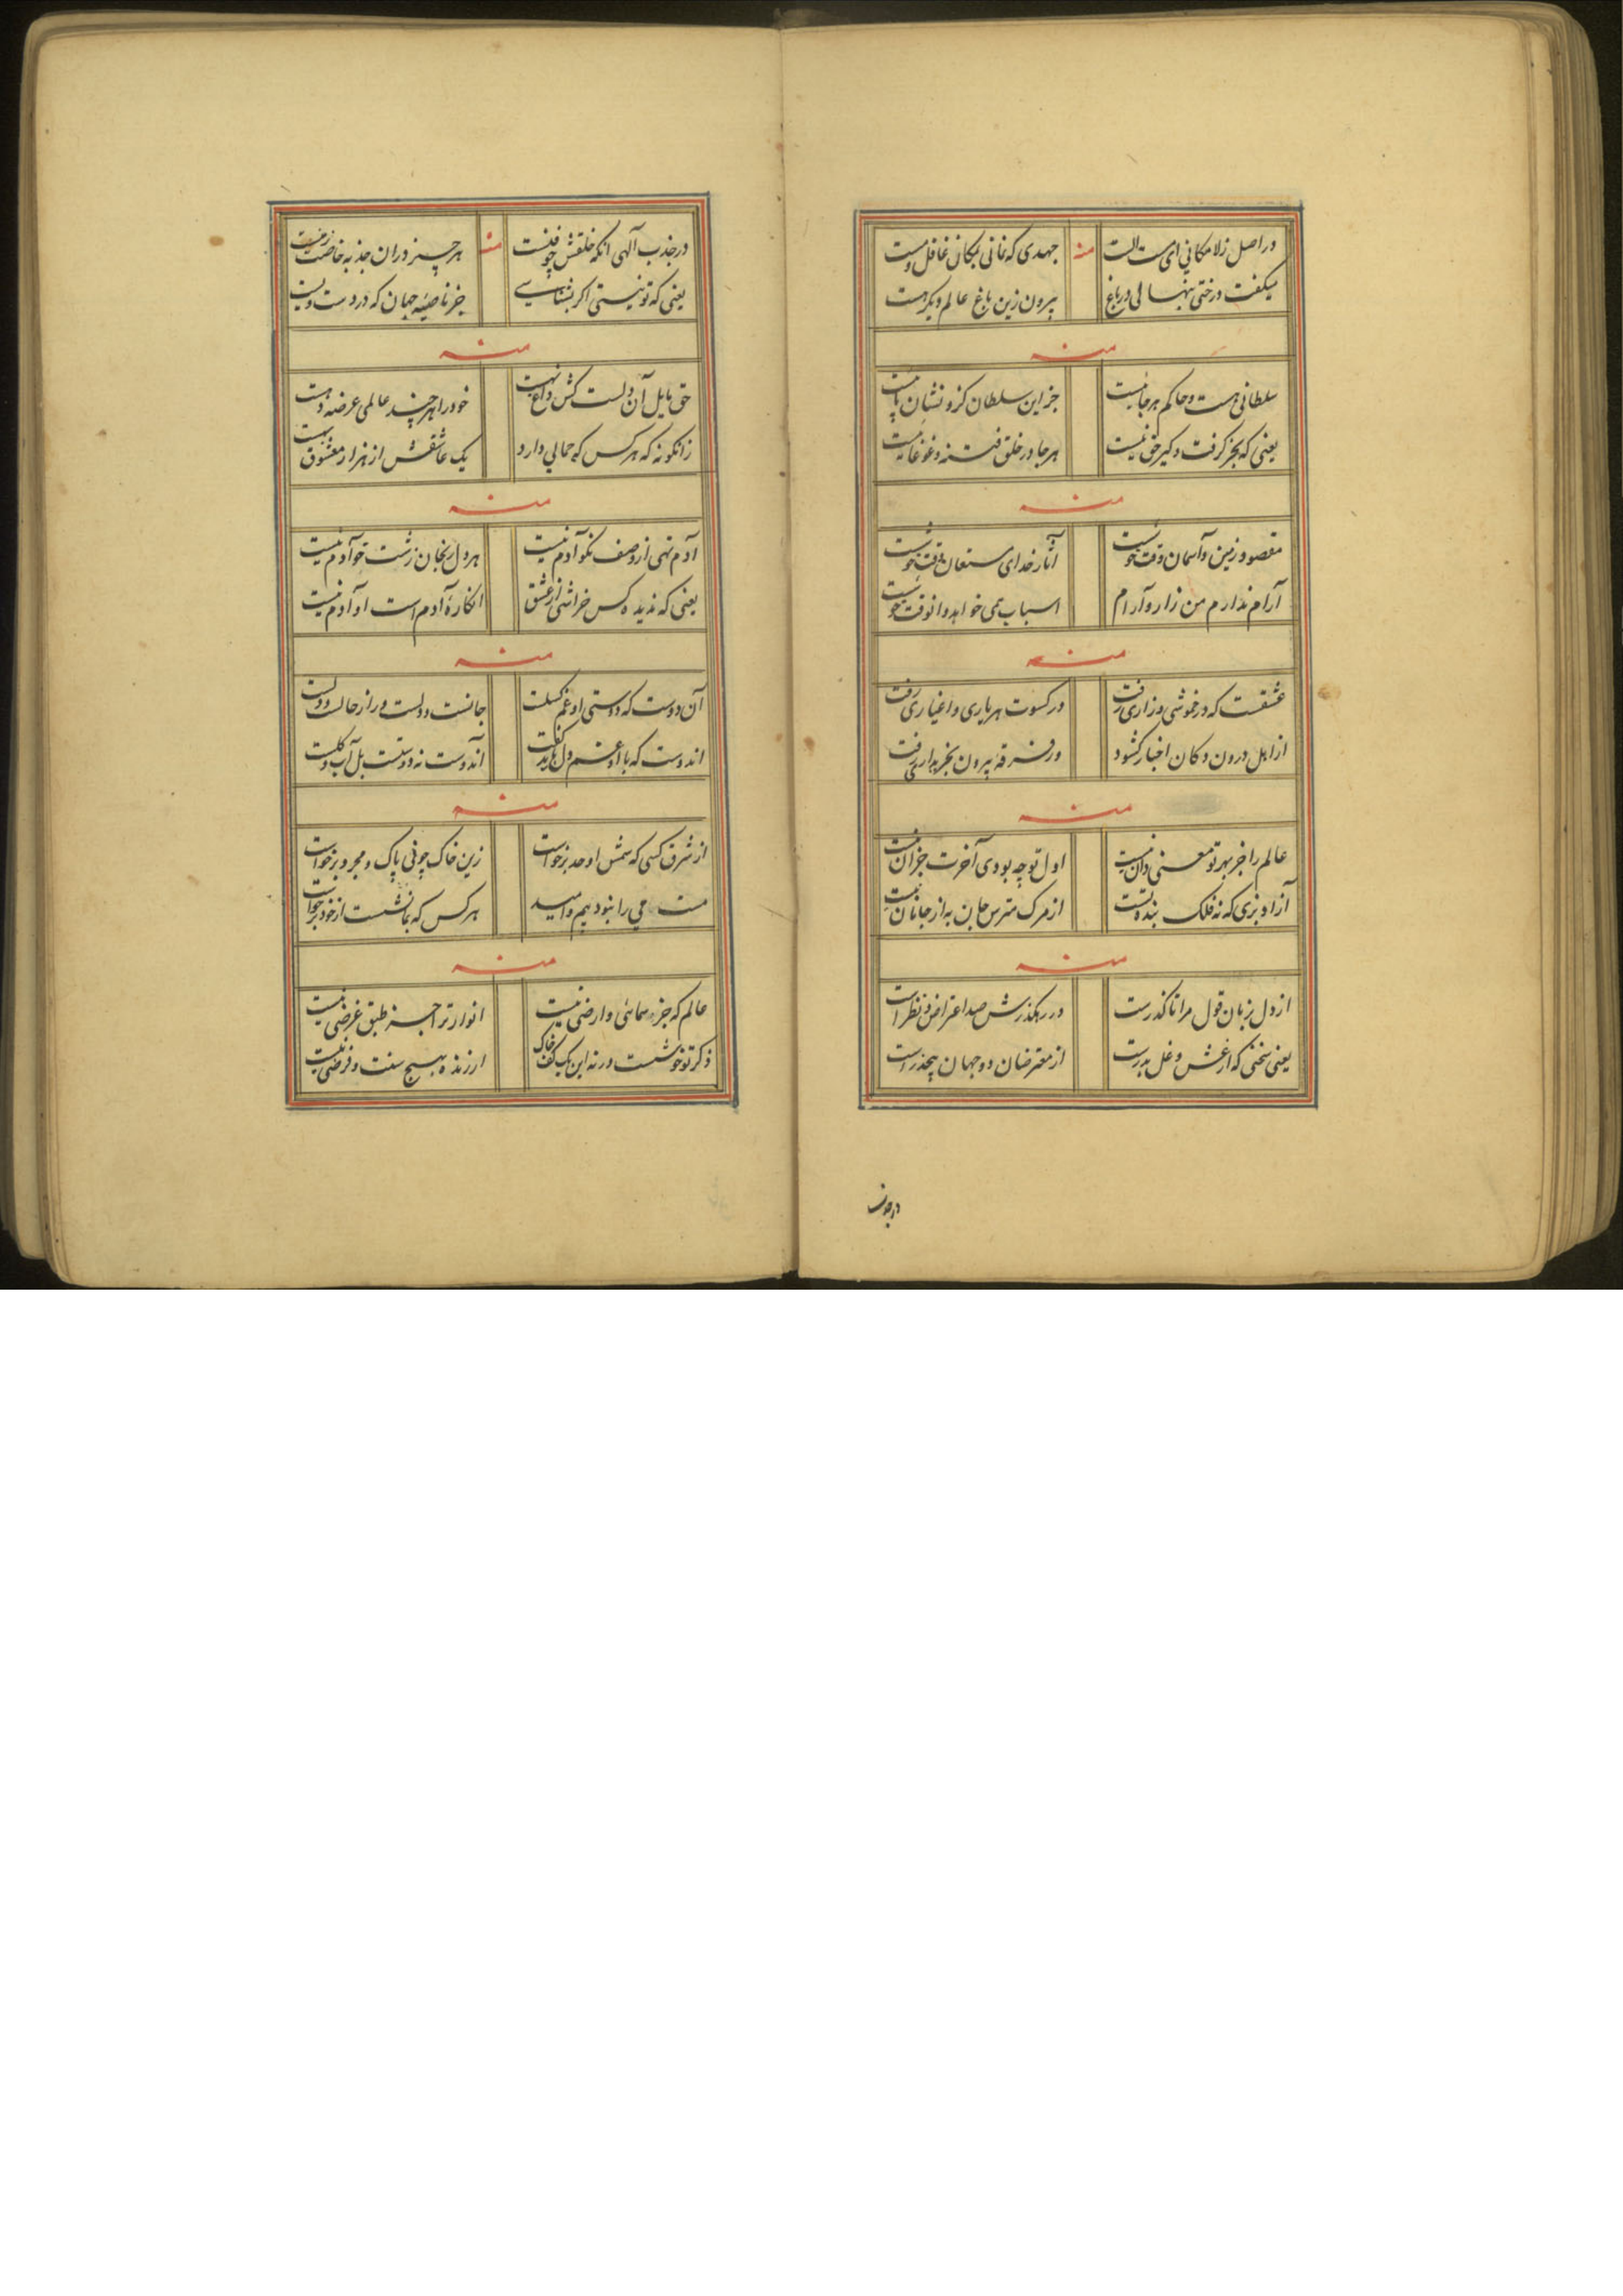 در اصل زلامکانی ای مست الست
منه
جهدی که نمانی بمکان غافل و مست
میگفت درختی بنهالی در باغ
بیرون زین باغ عالم دیگر هست
منه
سلطانی هست و حاکم هر جا نیست
جز این سلطان کزو نشان پیدا نیست
یعنی که بجز گرفت و گیر حق نیست
هر جا در خلق فتنه و غوغا نیست
منه
مقصود زمین و آسمان وقت خوشست
آثار خدای مستعان وقت خوشست
آرام ندارم من زار و آرام
اسباب همی خواهد و آن وقت خوشست
منه
عشقست که در خموشی و زاری رفت
در کسوت هر یاری و اغیاری رفت
از اهل درون دکان اخبار گشود
در فرقه بیرون بخریداری رفت
منه
عالم را جز بهر تو معنی دان نیست
اول تو چه بودی آخرت جز آن نیست
آزاد بزی که نه فلک بنده تست
از مرگ مترس جان به از جانان نیست
منه
از دل بزبان قول مرا تا گذرست
در رهگذرش صد اعتراض و نظر است
یعنی سخنی که از غش و غل بدرست
از معترضان دو جهان بیحذر است
در جذب
در جذب آلهی آنکه خلقش چو فنیست
منه
هر چیز در آن جذبه خاصیت نیست
یعنی که تو نیستی اگر بشناسی
جز ناصیه جهان که در دست ولیست
منه
حق مایل آن دلست کش داغ نهست
خود را هر چند عالمی عرضه دهست
زانگونه که هر کس که جمالی دارد
یک عاشقش از هزار معشوق بهست
منه
آدم تهی از وصف نکو آدم نیست
هر دل رنجان زشت خو آدم نیست
یعنی که ندیده کس خراشی از عشق
انگاره آدم است او آدم نیست
منه
آن دوست که دوستی او غم گسلست
جانست و دلست و راز حالست و دلست
اندوست که با او غم دل نتوان گفت
آندوست نه دوستست بل آب و گلست
منه
از شرق کسی که شمس اوحد برخواست
زین خاک چو نی پاک و مجرد برخواست
مست می را نبود بیم و امید
هر کس که بما نشست از خود برخواست
منه
عالم که جز سمائی و ارضی نیست
انوار ترا جز طبق عرضی نیست
ذکر تو خوشست ورنه این یک کف خاک
ارزنده بهیچ سنت و فرضی نیست